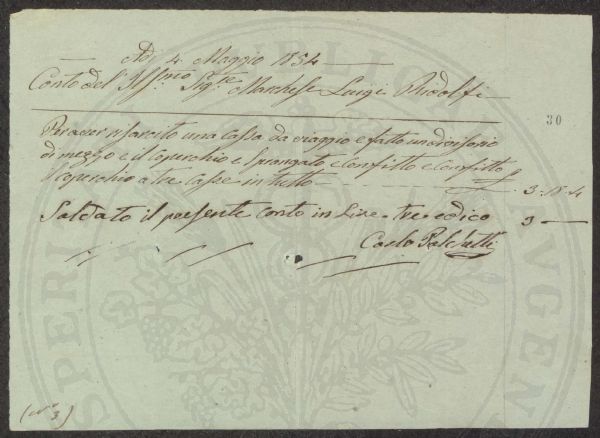 Adì 4. Maggio 1834
Conto del Illmo Sigre Marchese Luigi Ridolfi
30
Per aver risarcito una Cassa da viaggio e fatto un divisorio
di mezzo e il Coperchio e Sprangato e Confitto e Confitto
Coperchio a tre Casse in tutto 3: 4
Saldato il presente Conto in Lire tre e dico 3
Carlo
(No 3)
PERI
AVGEN